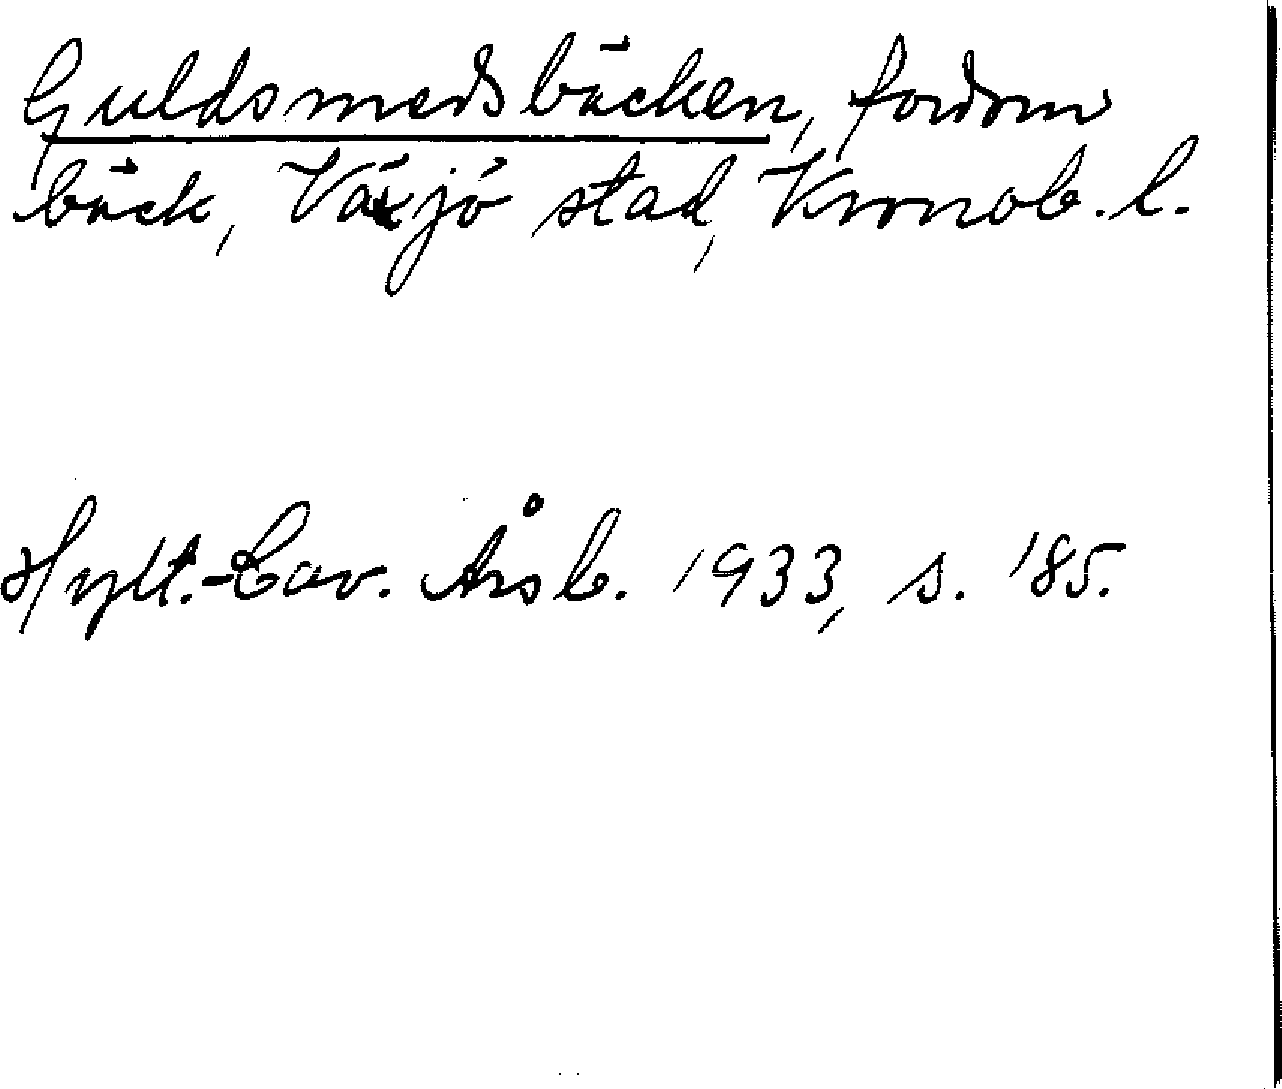 Guldsmedsbäcken, fordom
bäck, Växjö stad, Kronob. l.
Hylt.-Cav. Årsb. 1933, s. 185.